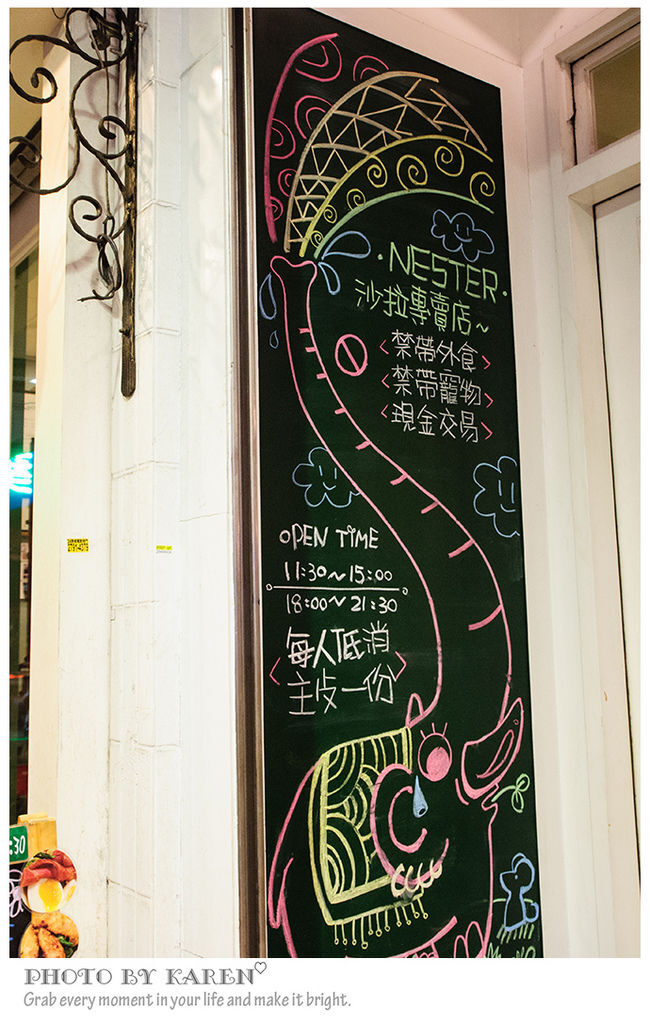 ·NESTER·
沙拉專賣店~
<禁帶外食>
<禁帶寵物>
<現金交易>
OPEN TIME
11:30~15:00
18:00~21:30
每人低消
主食一份
:30
PHOTO BY KAREN♡
Grab every moment in your life and make it bright.